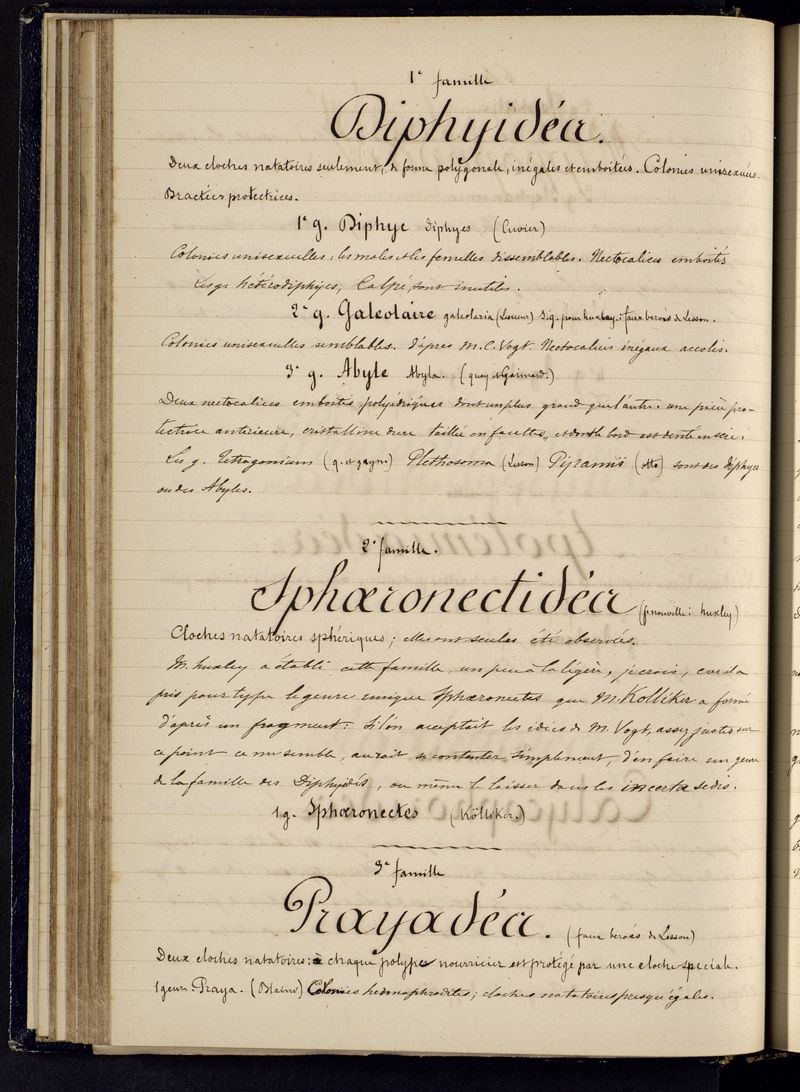 1e famille
Diphyidéa.
Deux cloches natatoires seulement, de forme polygonale, inégales et emboitées. Colonies unisexuées.
Bractées protectrices.
1e g. Diphye diphyes (Cuvier)
Colonies unisexuelles: les males et les femelles dissemblables. Nectocalices emboités
Les g. hétérodiphyes, Calpé, sont inutiles.
2e g. Galéolaire galeolaria (Lesueur) Sig. pour huxley: faux beroës de Lesson.
Colonies unisexuelles semblables. d'après M. C. Vogt. Nectocalices inégaux accolés.
3e g. Abyle Abyla. (quoy et Gaimard.)
Deux nectocalices emboités polyédriques dont un plus grand que l'autre: une pièce pro-
tectrice antérieure, cristalline dure taillée en facettes, et dont le bord est denté en scie.
Les g. Tetragonium (q. et gaym) Plethosoma (Lesson) Pyramis (otto) sont des diphyes
ou des Abyles.
2e famille.
Sphœronectidéa (f. nouvelle: huxley)
Cloches natatoires sphériques; elles ont seules été observées.
M. huxley a établi cette famille, un peu à la légère, je crois, car il a
pris pour type le genre unique Sphœronectes que M. Kolliker a formé
d'après un fragment: Si l'on acceptait les idées de M. Vogt, assez justes sur
ce point ce me semble, on aurait se contenter simplement, d'en faire un genre
de la famille des Diphyidés, ou même le laisser dans les incertæ sedis.
1 g. Sphœronectes (Kölliker.)
3e famille
Prayadéa. (faux beroës de Lesson)
Deux cloches natatoires: chaque polype nourricier est protégé par une cloche speciale.
1 genre Praya. (Blainv) Colonies hermaphrodites; cloches natatoires presqu'égales.